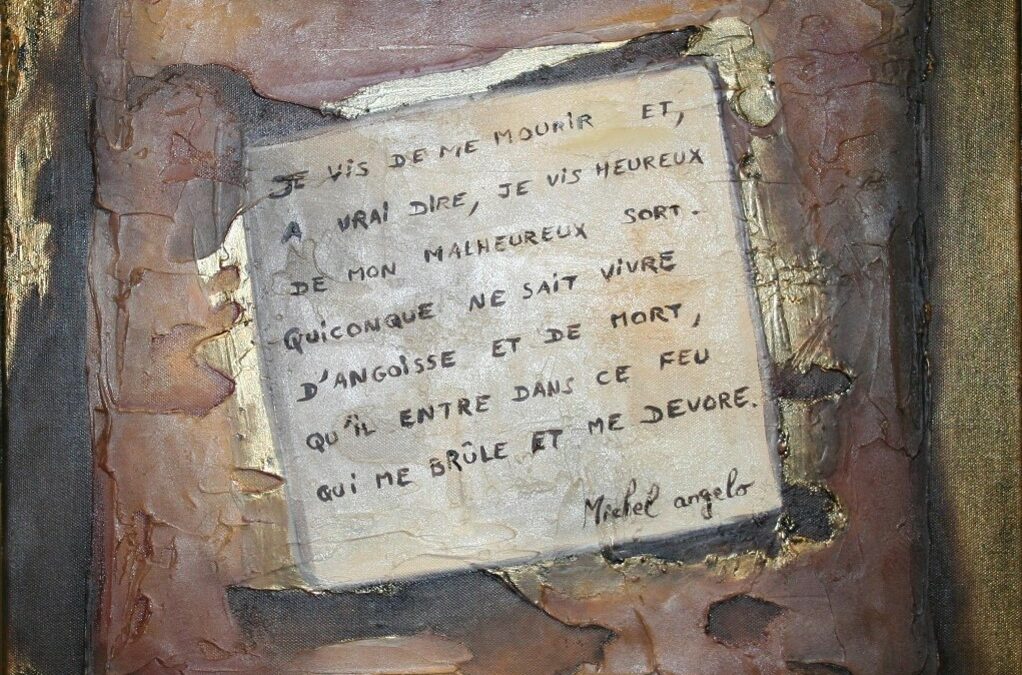 JE VIS DE ME MOURIR ET,
A VRAI DIRE, JE VIS HEUREUX
DE MON MALHEUREUX SORT.
QUICONQUE NE SAIT VIVRE
D'ANGOISSE ET DE MORT,
QU'IL ENTRE DANS CE FEU
QUI ME BRÛLE ET ME DEVORE.
Michel angelo